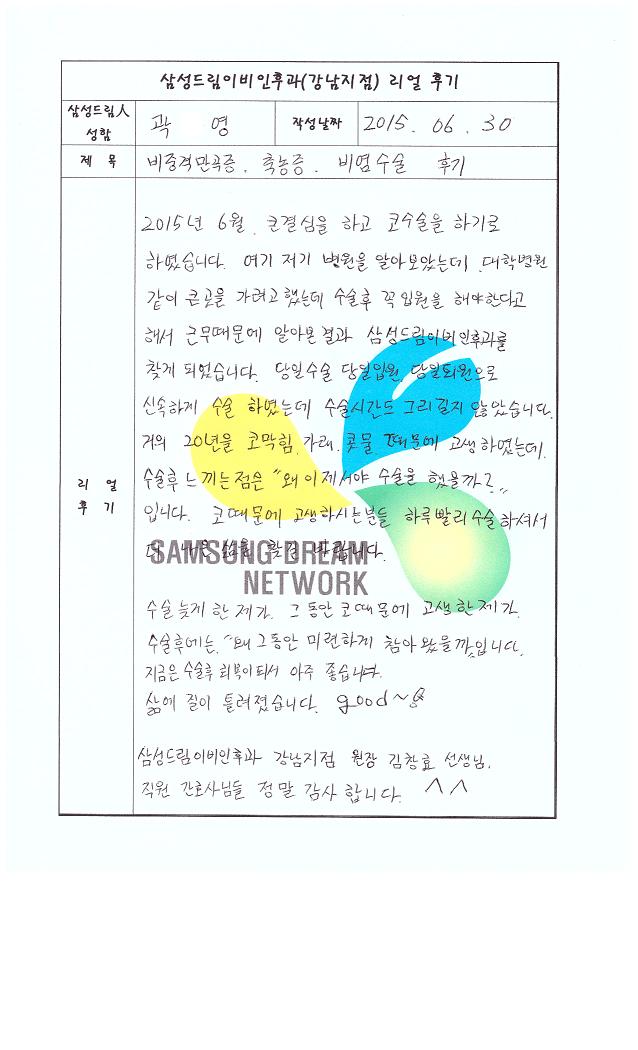 삼성드림이비인후과(강남지점) 리얼 후기
삼성드림人 성함 곽 영 작성날짜 2015. 06. 30
제 목 비중격만곡증. 축농증. 비염수술 후기
리 얼 후 기
2015년 6월. 큰결심을 하고 코수술을 하기로
하였습니다. 여기 저기 병원을 알아보았는데. 대학병원
같이 큰곳을 가려고 했는데 수술후 꼭입원을 해야한다고
해서 근무때문에 알아본결과 삼성드림이비인후과를
찾게 되었습니다. 당일수술 당일입원. 당일퇴원으로
신속하게 수술 하였는데 수술시간도 그리길지 않았습니다.
거의 20년을 코막힘. 가래. 콧물 때문에 고생하였는데.
수술후 느끼는점은 "왜 이제서야 수술을 했을까?"
입니다. 코때문에 고생하시는분들 하루빨리 수술하셔서
더 나은 삶을 찾길 바랍니다.
SAMSUNG DREAM
NETWORK
수술늦게 한 제가. 그동안 코때문에 고생한제가.
수술후에는. "왜 그동안 미련하게 참아왔을까"입니다.
지금은 수술후 회복이되서 아주 좋습니다.
삶에 질이 틀려졌습니다. good~
삼성드림이비인후과 강남지점 원장 김창효 선생님.
직원 간호사님들 정말 감사 합니다. ^^